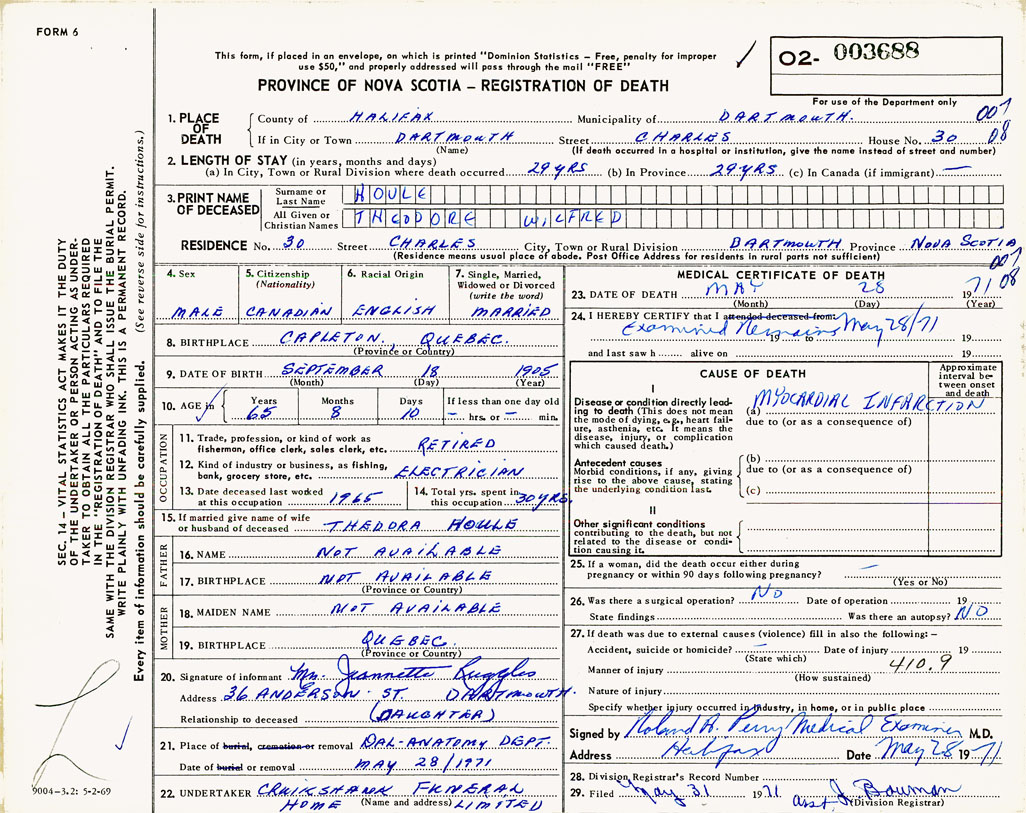 FORM 6
This form, if placed in an envelope, on which is printed "Dominion Statistics – Free, penalty for improper
use $50," and properly addressed will pass through the mail "FREE"
O2- 003688
PROVINCE OF NOVA SCOTIA – REGISTRATION OF DEATH
For use of the Department only
007
08
1. PLACE OF DEATH
County of HALIFAX Municipality of DARTMOUTH.
If in City or Town DARTMOUTH Street CHARLES House No. 30
(Name) (If death occurred in a hospital or institution, give the name instead of street and number)
2. LENGTH OF STAY (in years, months and days)
(a) In City, Town or Rural Division where death occurred 29 YRS (b) In Province 29 YRS (c) In Canada (if immigrant) —
3. PRINT NAME OF DECEASED
Surname or Last Name HOULE
All Given or Christian Names THEODORE WILFRED
RESIDENCE No. 30 Street CHARLES City, Town or Rural Division DARTMOUTH Province NOVA SCOTIA
(Residence means usual place of abode. Post Office Address for residents in rural parts not sufficient)
007
08
4. Sex
MALE
5. Citizenship
(Nationality)
CANADIAN
6. Racial Origin
ENGLISH
7. Single, Married,
Widowed or Divorced
(write the word)
MARRIED
8. BIRTHPLACE CAPLETON, QUEBEC.
(Province or Country)
9. DATE OF BIRTH SEPTEMBER 18 1905
(Month) (Day) (Year)
10. AGE in Years 65 Months 8 Days 10 If less than one day old
– hrs. or – min.
OCCUPATION
11. Trade, profession, or kind of work as
fisherman, office clerk, sales clerk, etc. RETIRED
12. Kind of industry or business, as fishing,
bank, grocery store, etc. ELECTRICIAN
13. Date deceased last worked
at this occupation 1965
14. Total yrs. spent in
this occupation 30 YRS.
15. If married give name of wife
or husband of deceased THEDORA HOULE
FATHER
16. NAME NOT AVAILABLE
17. BIRTHPLACE NOT AVAILABLE
(Province or Country)
MOTHER
18. MAIDEN NAME NOT AVAILABLE
19. BIRTHPLACE QUEBEC.
(Province or Country)
20. Signature of informant Mrs. Jeannette Ruggles
Address 36 ANDERSON ST. DARTMOUTH.
Relationship to deceased (DAUGHTER)
21. Place of burial, cremation or removal DAL-ANATOMY DEPT.
Date of burial or removal MAY 28/1971
22. UNDERTAKER CRUIKSHANK FUNERAL
HOME (Name and address) LIMITED
MEDICAL CERTIFICATE OF DEATH
23. DATE OF DEATH MAY 28 1971
(Month) (Day) (Year)
24. I HEREBY CERTIFY that I attended deceased from:
Examined Remains May 28/71
19 to 19
and last saw h alive on 19
CAUSE OF DEATH
Approximate
interval be-
tween onset
and death
I
Disease or condition directly lead-
ing to death (This does not mean
the mode of dying, e.g., heart fail-
ure, asthenia, etc. It means the
disease, injury, or complication
which caused death.)
(a) MYOCARDIAL INFARCTION
due to (or as a consequence of)
Antecedent causes
Morbid conditions, if any, giving
rise to the above cause, stating
the underlying condition last.
(b)
due to (or as a consequence of)
(c)
II
Other significant conditions
contributing to the death, but not
related to the disease or condi-
tion causing it.
25. If a woman, did the death occur either during
pregnancy or within 90 days following pregnancy? —
(Yes or No)
26. Was there a surgical operation? NO Date of operation 19
State findings Was there an autopsy? NO
27. If death was due to external causes (violence) fill in also the following: –
Accident, suicide or homicide? – Date of injury 19
(State which)
Manner of injury 410.9
(How sustained)
Nature of injury
Specify whether injury occurred in industry, in home, or in public place
Signed by Roland A. Perry Medical Examiner M.D.
Address Halifax Date May 28 1971
28. Division Registrar's Record Number
29. Filed May 31 1971 asst J. Bauman
(Division Registrar)
SEC. 14 – VITAL STATISTICS ACT MAKES IT THE DUTY
OF THE UNDERTAKER OR PERSON ACTING AS UNDER-
TAKER TO OBTAIN ALL THE PARTICULARS REQUIRED
IN THE "REGISTRATION OF DEATH" AND TO FILE THE
SAME WITH THE DIVISION REGISTRAR WHO SHALL ISSUE THE BURIAL PERMIT.
WRITE PLAINLY WITH UNFADING INK. THIS IS A PERMANENT RECORD.
Every item of information should be carefully supplied. (See reverse side for instructions.)
9004-3.2: 5-2-69